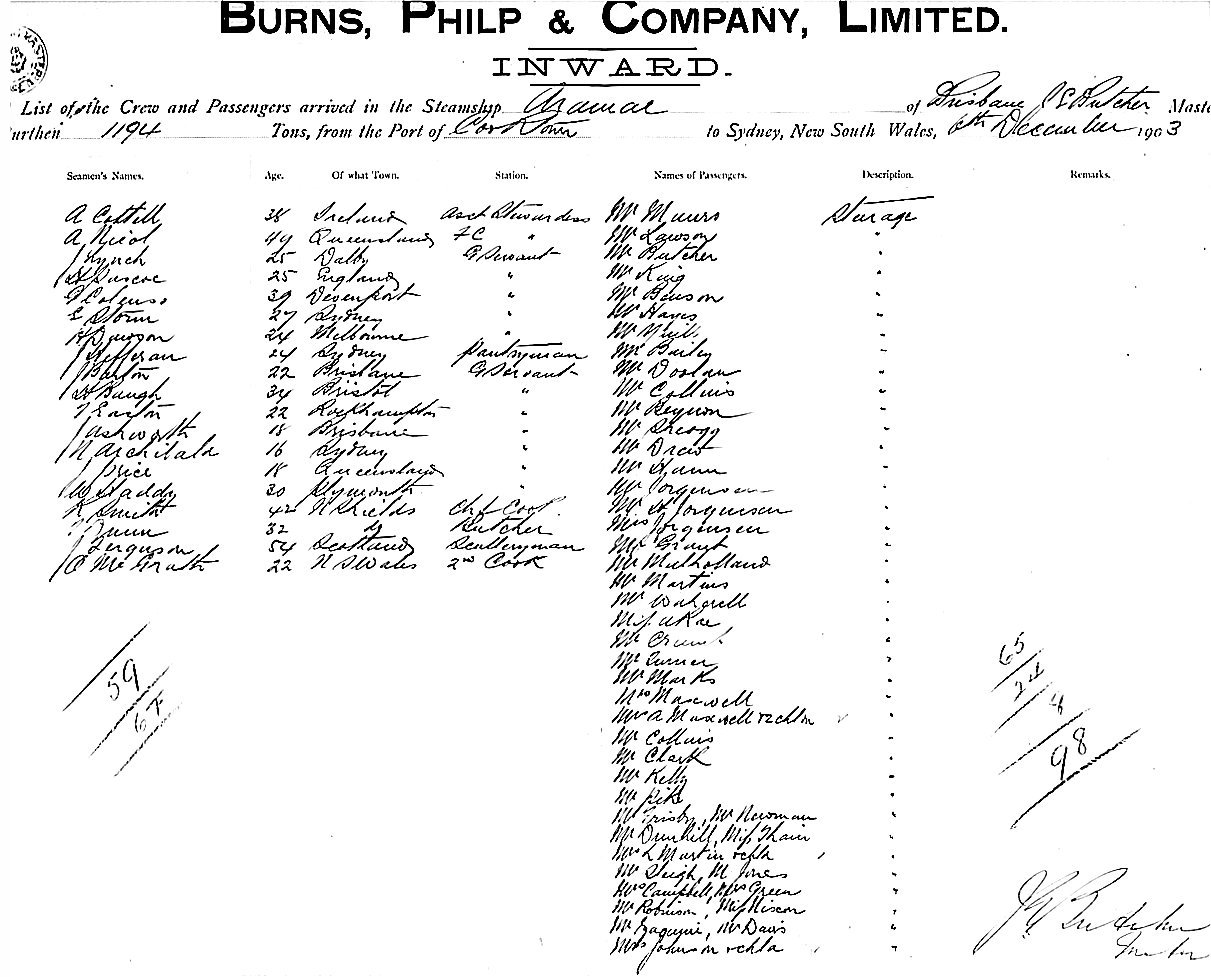 BURNS, PHILP & COMPANY, LIMITED.
INWARD.
List of the Crew and Passengers arrived in the Steamship Aramac of Brisbane J E Butcher Maste
urthen 1194 Tons, from the Port of Cooktown to Sydney, New South Wales, 6th December 1903
Seamen's Names. Age. Of what Town. Station. Names of Passengers. Description. Remarks.
A Cottell 38 Ireland Asst Stewardess Mr Munro Sturage
A Nicol 49 Queensland FC " Mr Lawson "
J Lynch 25 Dalby G Servant Mr Butcher "
H Pascoe 25 England " Mr King "
G Colenso 39 Devenport " Mr Benson "
E Storm 27 Sydney " Mr Hayes "
H Dawson 24 Melbourne " Mr Neill "
J Hefferan 24 Sydney Pantryman Mr Bailey "
J Barton 22 Brisbane G Servant Mr Doolan "
H Baugh 34 Bristol " Mr Collins "
T Easton 22 Rockhampton " Mr Beynon "
J Ashworth 18 Brisbane " Mr Gregg "
N Archibald 16 Sydney " Mr Drew "
J Price 18 Queensland " Mr Hann "
W Staddy 30 Plymouth " Mr Jorgensen "
R Smith 42 N Shields Chf Cook Mr H Jorgensen "
J Dunn 32 Do Butcher Miss Jorgensen "
J Ferguson 54 Scotland Sculleryman Mr Grant "
C McGrath 22 N S Wales 2nd Cook Mr Mulholland "
Mr Martins "
Mr "
Miss "
Mr "
Mr Turner "
Mr Marks "
Mrs Maxwell "
Mrs A Maxwell "
Mr Collins "
Mr Clark "
Mr Kelly "
Mr Pike "
Mr Frisby, Mr Newman "
Mr Dunhill, Miss Thain "
Mrs L Martin "
Mr Sleigh, M Jones "
Mrs Campbell, Mrs Green "
Mr Robinson, Miss Nixon "
Mr Davis "
Mrs Johnson "
59
67
65
24
98
J E Butcher